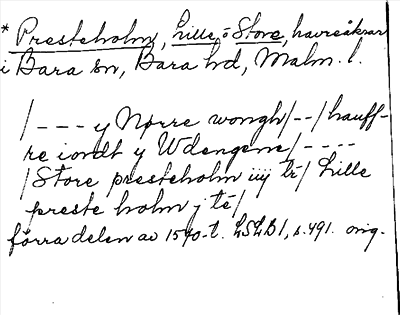 * Presteholm, Lille- o Store, havreåkrar
i Bara sn, Bara hd, Malm. l.
/--- y Nørre wongh/--/hauff-
re iordt y Wdengene/----
/Store presteholm iiij te/ Lille
preste holm j te/
förra delen av 1540-t. LSLB1, s. 491. orig.